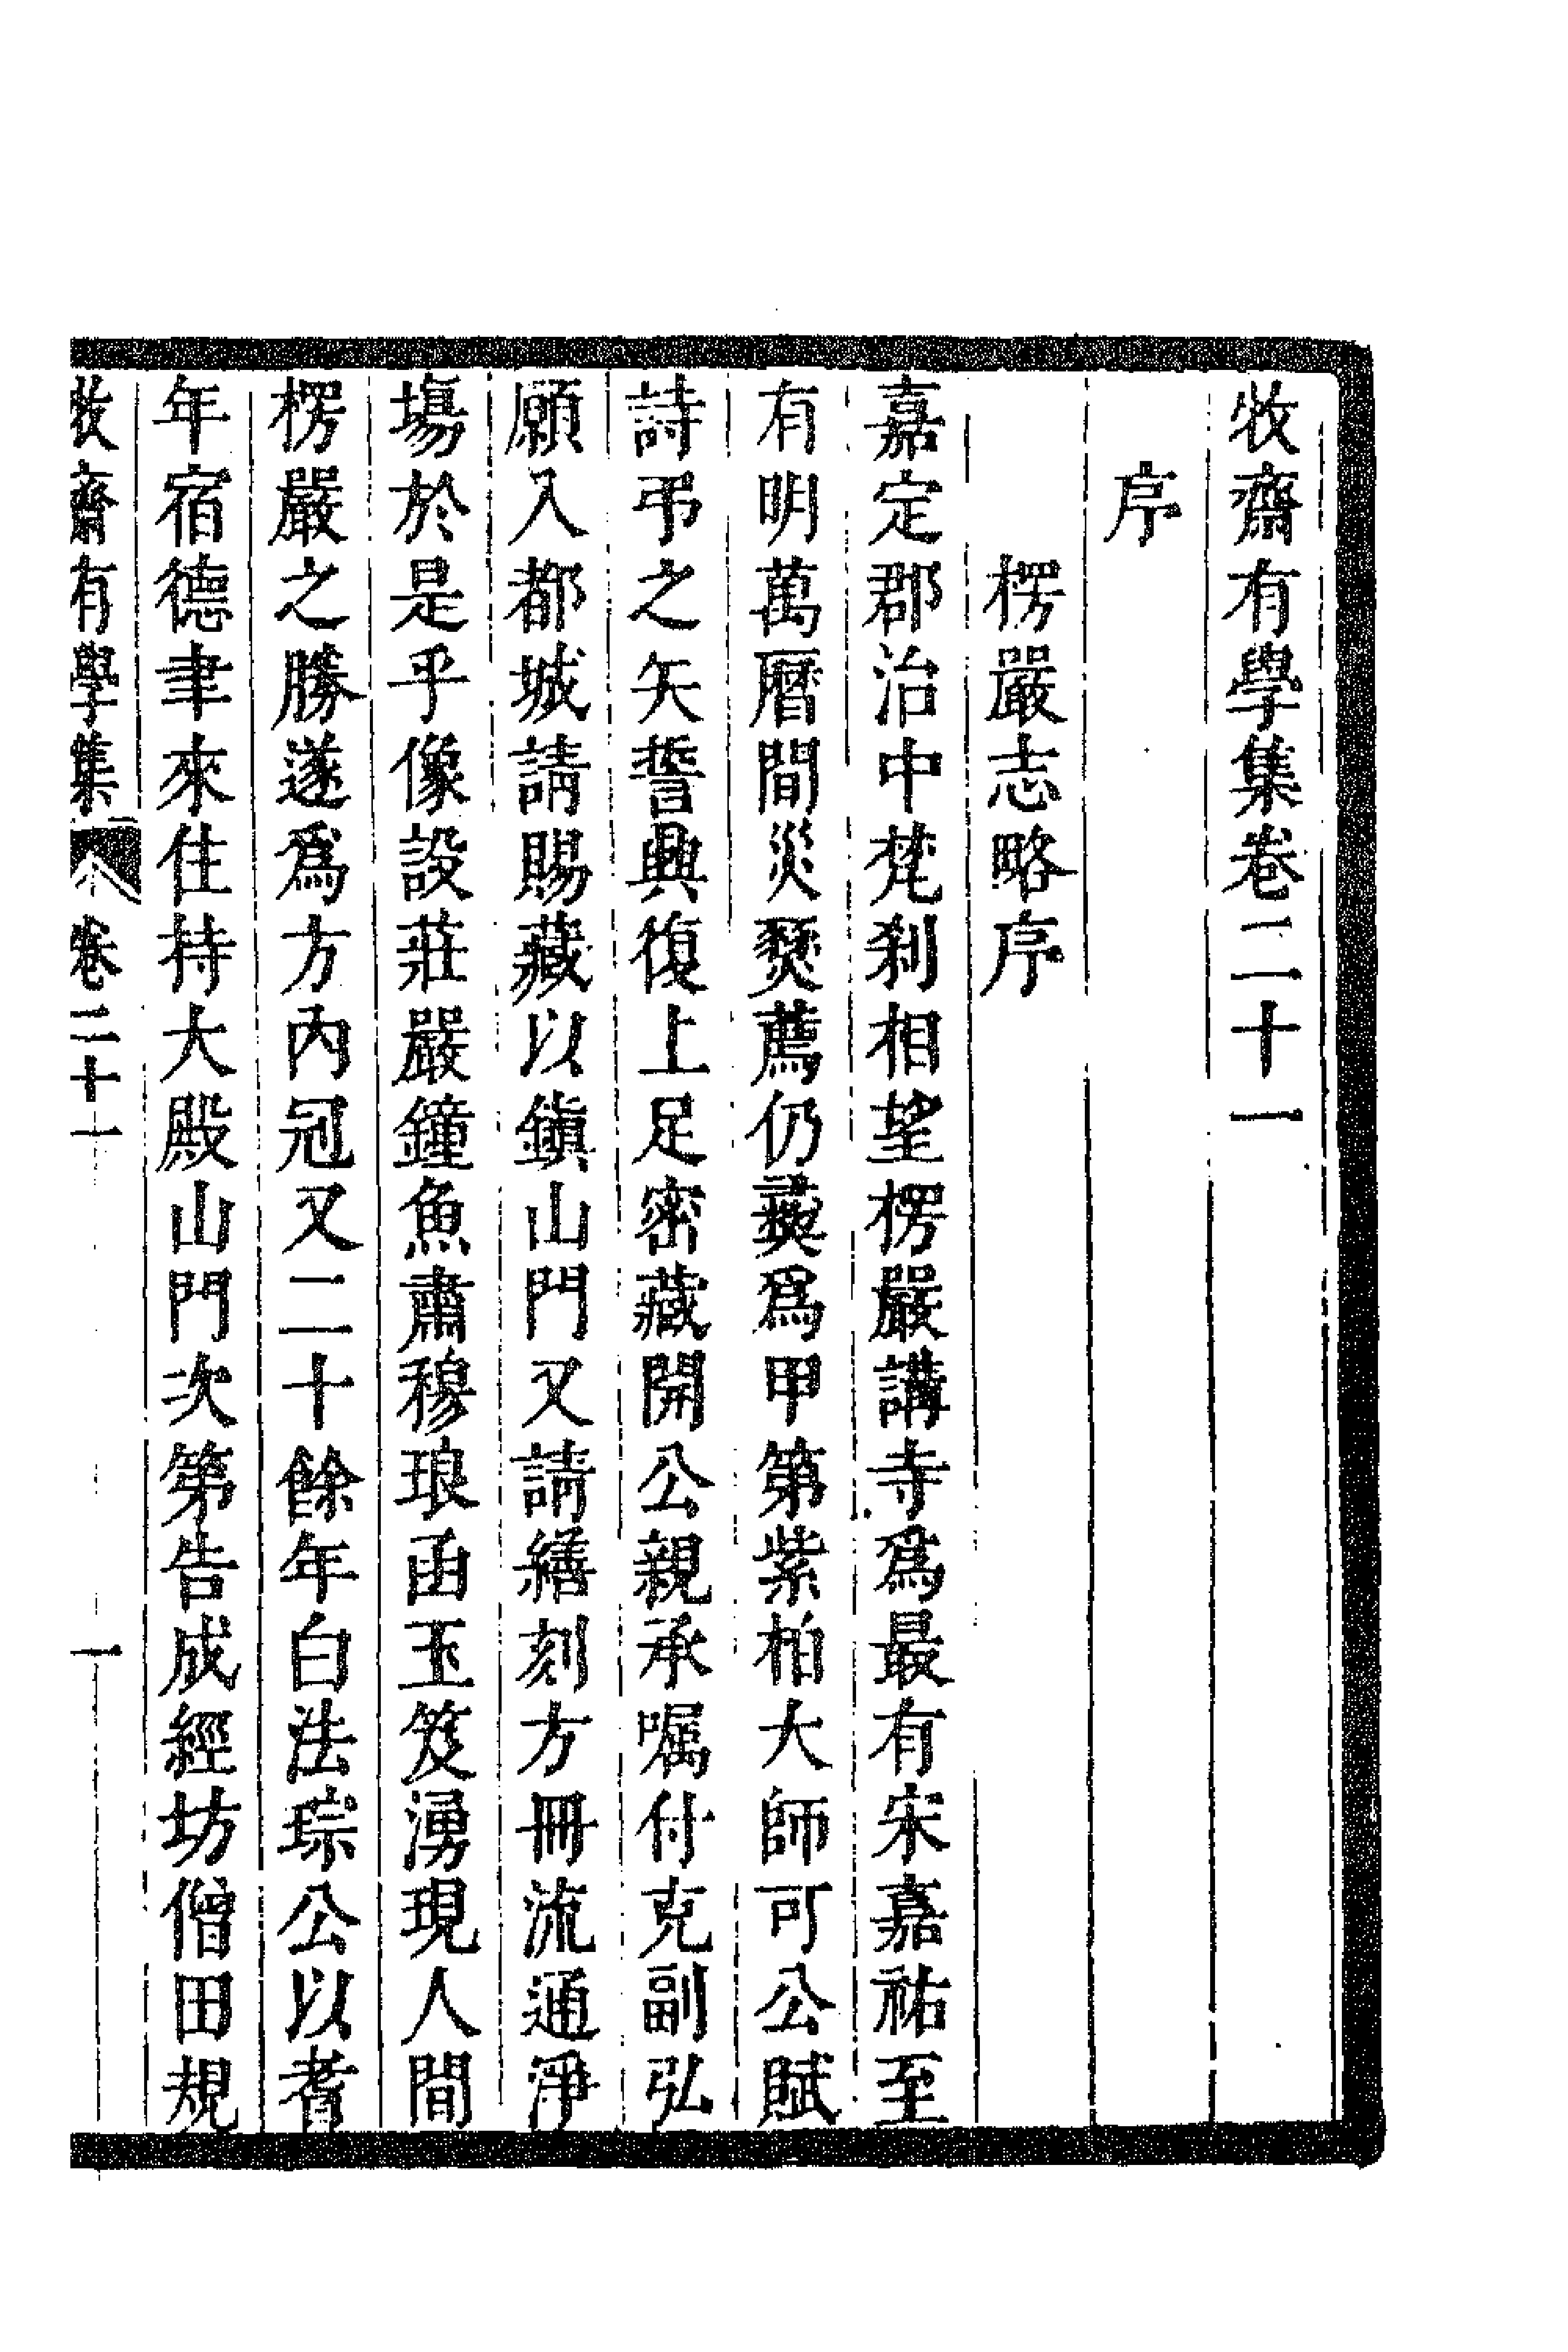 牧齋有學集卷二十一
序
楞嚴志略序
嘉定郡治中梵刹相望楞嚴講寺爲最有宋嘉祐至
有明萬曆間災燹薦仍爨爲甲第紫柏大師可公賦
詩弔之矢誓興復上足密藏開公親承嘱付克副弘
願入都城請賜藏以鎭山門又請繕刻方冊流通淨
塲於是乎像設莊嚴鐘魚肅穆琅函玉笈湧現人間
楞嚴之勝遂爲方內冠又二十餘年白法琮公以耆
年宿德聿來住持大殿山門次第告成經坊僧田規
牧齋有學集 卷二十一 一